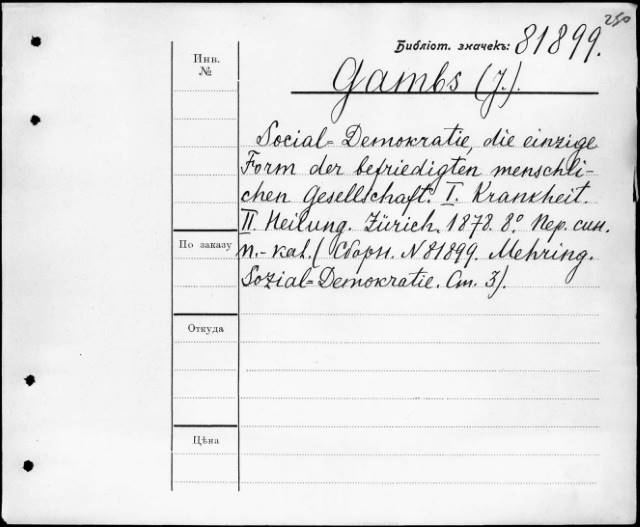 250
Библіот. значекъ: 81899.
Инв.
№
Gambs (J.).
Social=Demokratie, die einzige
Form der befriedigten menschli-
chen Gesellschaft. I. Krankheit.
II. Heilung. Zürich. 1878. 8º. Пер. син.
п.-kal. (Сборн. N 81899. Mehring.
Sozial=Demokratie. Ст. 3).
По заказу
Откуда
Цѣна